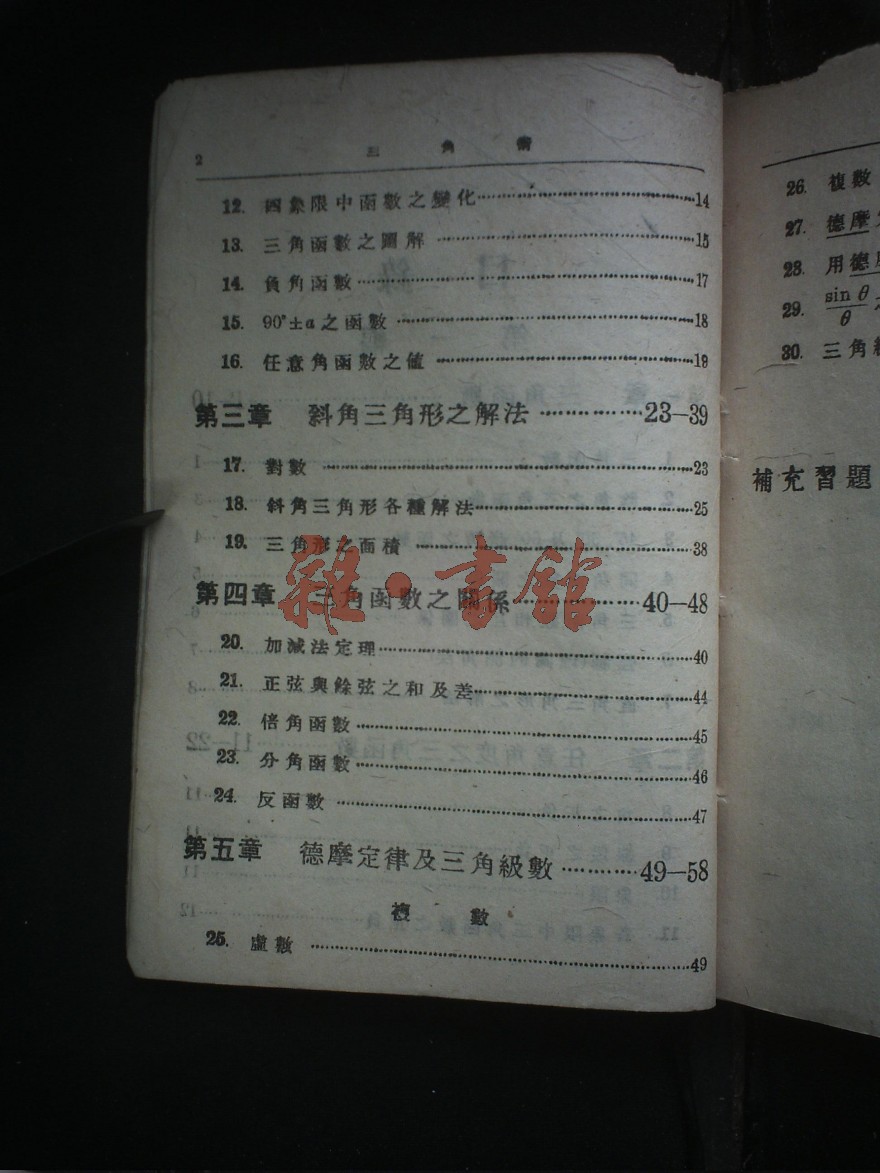 2 三角術
12. 四象限中函數之變化 14
13. 三角函數之圖解 15
14. 負角函數 17
15. 90°±α之函數 18
16. 任意角函數之値 19
第三章 斜角三角形之解法 23—39
17. 對數 23
18. 斜角三角形各種解法 25
19. 三角形之面積 38
第四章 三角函數之關係 40—48
20. 加減法定理 40
21. 正弦與餘弦之和及差 44
22. 倍角函數 45
23. 分角函數 46
24. 反函數 47
第五章 德摩定律及三角級數 49—58
複數
25. 虛數 49
雜·書館
26. 複數
27. 德摩
28. 用德
29. sin θ/θ
30. 三角
補充習題